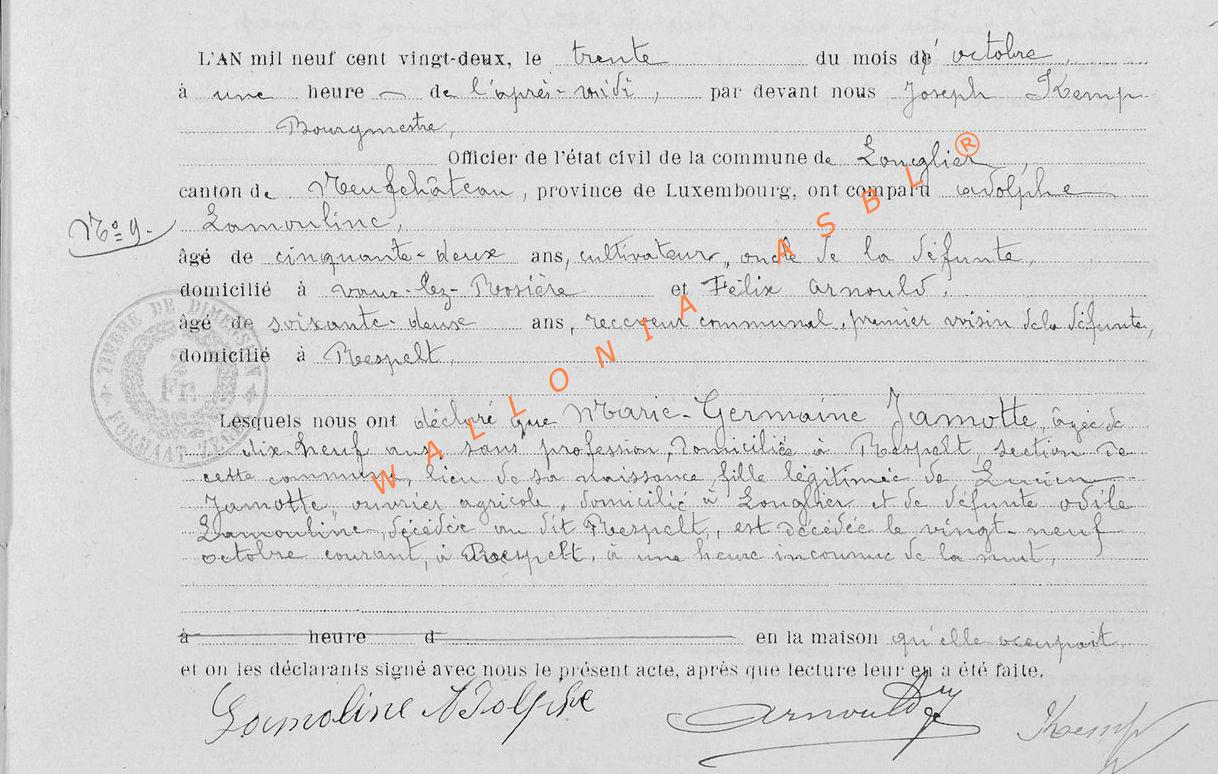 L'AN mil neuf cent vingt-deux, le trente du mois d' octobre,
à une heure — de l'après-midi, par devant nous Joseph Kemp
Bourgmestre,
Officier de l'état civil de la commune de Longlier,
canton de Neufchâteau, province de Luxembourg, ont comparu Adolphe
N° 9.
Lamouline,
âgé de cinquante-deux ans, cultivateur, oncle de la défunte,
domicilié à Vaux-lez-Rosière et Félix Arnould,
âgé de soixante-deux ans, receveur communal, premier voisin de la défunte,
domicilié à Respelt,
TIMBRE DE DIMENSION
Fr.
FORMAAT
Lesquels nous ont déclaré que Marie-Germaine Jamotte, âgée de
dix-neuf ans, sans profession, domiciliée à Respelt, section de
cette commune, lieu de sa naissance, fille légitimée de Lucien
Jamotte, ouvrier agricole, domicilié à Longlier et de défunte Odile
Lamouline, décédée au dit Respelt, est décédée le vingt-neuf
octobre courant, à Respelt, à une heure inconnue de la nuit,
à heure d en la maison qu'elle occupait
et on les déclarants signé avec nous le présent acte, après que lecture leur en a été faite.
Lamoline Adolphe Arnould Kemp
WALLONIA ASBL®